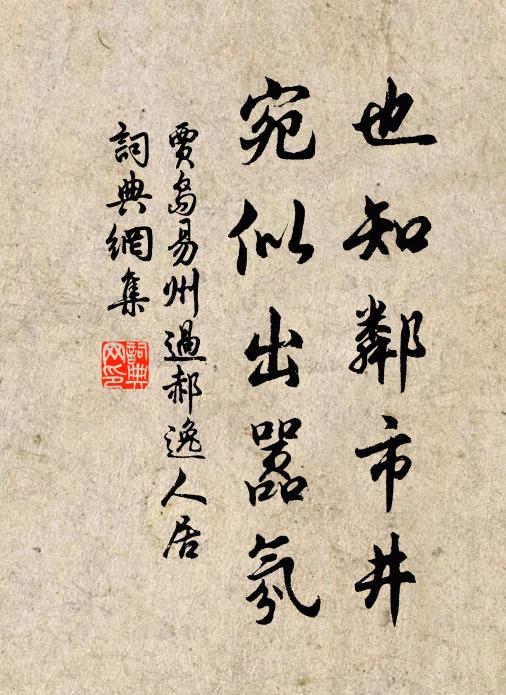 也知鄰市井
宛似出嚣氛
賈島易州過郝逸人居
詞典網集
詞典网印